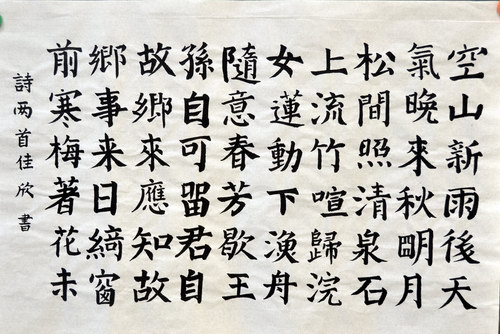 空山新雨後天
氣晚來秋朙月
松間照清泉石
上流竹喧歸浣
女蓮動下漁舟
隨意春芳歇王
孫自可留君自
故鄉來應知故
鄉事来日綺窗
前寒梅著花未
詩两首佳欣書